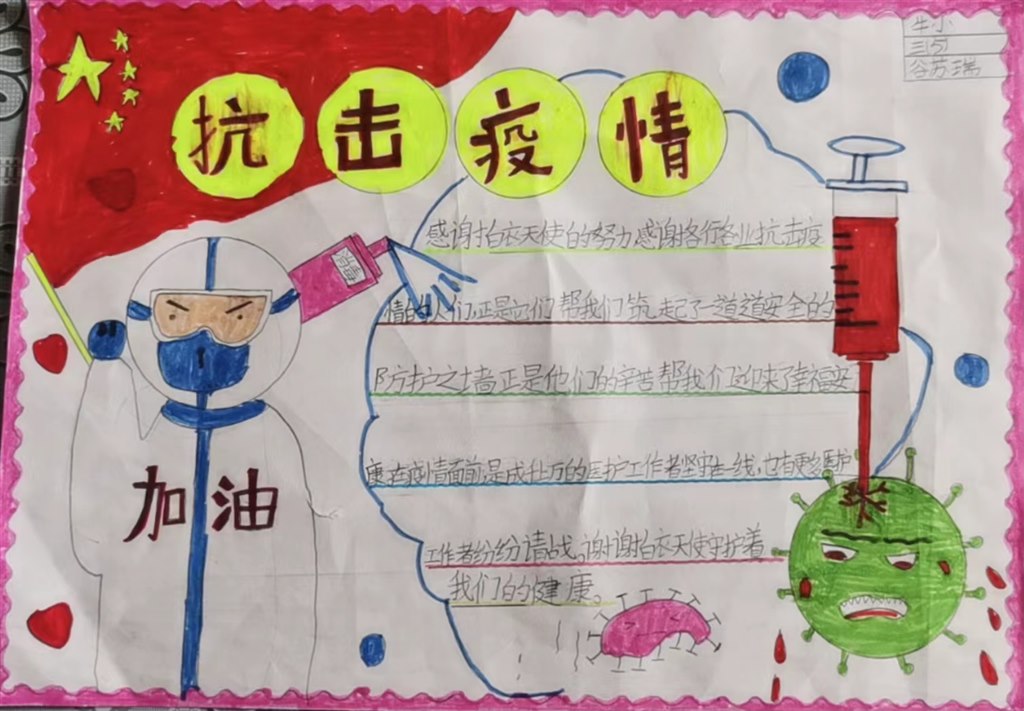 牛小
三(5)
谷苏瑞
抗击疫情
消毒
加油
感谢白衣天使的努力感谢各行各业抗击疫
情的人们,正是它们帮我们筑起了一道道安全的
防护之墙,正是他们的辛苦帮我们迎来了幸福安
康在疫情面前,是成千上万的医护工作者坚守在一线,也有医护
工作者纷纷请战。谢谢白衣天使守护着
我们的健康。